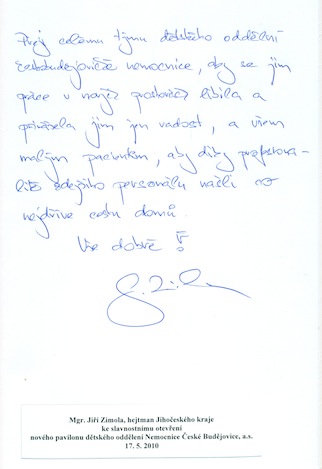 Přeji celému týmu dětského oddělení
českobudějovické nemocnice, aby se jim
práce v nových prostorách líbila a
přinášela jim jen radost, a všem
malým pacientům, aby díky profesiona-
litě zdejšího personálu našli co
nejdříve cestu domů.
Vše dobré!
Mgr. Jiří Zimola, hejtman Jihočeského kraje
ke slavnostnímu otevření
nového pavilonu dětského oddělení Nemocnice České Budějovice, a.s.
17. 5. 2010